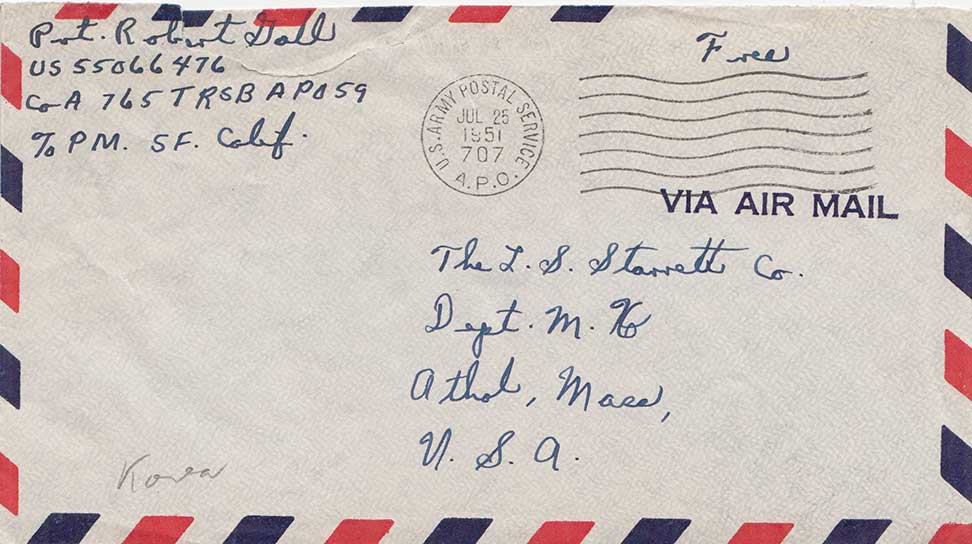 Pvt. Robert Gall
US 55066476
Co A 765 TRSB APO 59
c/o PM. SF. Calif.
Free
U.S. ARMY POSTAL SERVICE
JUL 25
1951
707
A.P.O.
VIA AIR MAIL
The L. S. Starrett Co.
Dept. M.
Athol, Mass,
U. S. A.
Korea